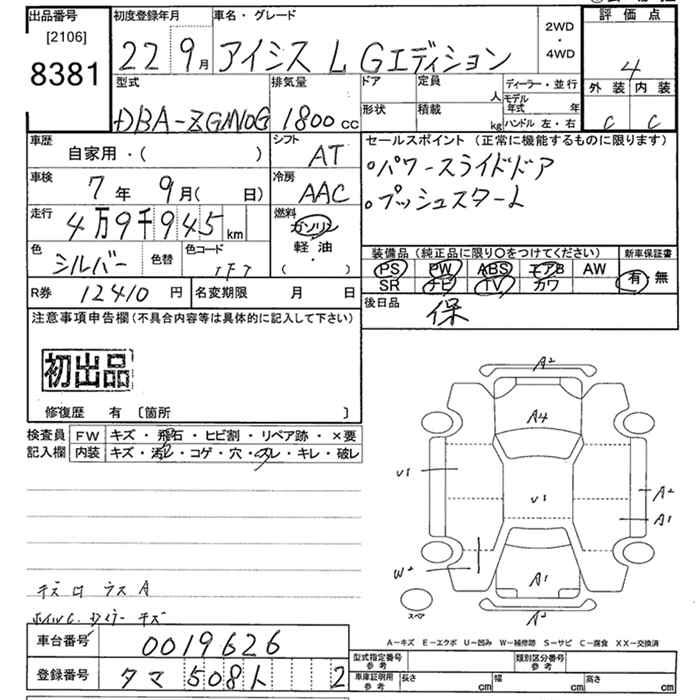 出品番号
[2106]
8381
初度登録年月
22 9月
車名・グレード
アイシス L Gエディション
2WD
・
4WD
評価点
4
外装 内装
C C
型式
DBA-ZGM10G
排気量
1800cc
ドア
形状
定員
人
積載
kg
ディーラー・並行
モデル年式 年
ハンドル 左・右
車歴
自家用・( )
シフト
AT
車検
7年 9月( 日)
冷房
AAC
走行
4万9千945km
燃料
ガソリン
軽油
・
( )
色
シルバー
色替
色コード
セールスポイント (正常に機能するものに限ります)
・パワースライドドア
・プッシュスタート
装備品 (純正品に限り○をつけてください)
PS PW ABS エアB AW
SR ナビ TV カワ
新車保証書
有 無
R券 12410円
名変期限 月 日
後日品
保
注意事項申告欄(不具合内容等は具体的に記入して下さい)
初出品
修復歴 有 〔箇所 〕
検査員
記入欄
FW キズ・飛石・ヒビ割・リペア跡・×要
内装 キズ・汚・コゲ・穴・スレ・キレ・破レ
A2
A4
U1
U1
A2
A1
W2
A1
A2
スペア
A-キズ E-エクボ U-凹み W-補修跡 S-サビ C-腐食 XX-交換済
ホイルC. タイヤー キズ
車台番号
0019626
登録番号
タマ 508 ト 2
型式指定番号
参考
類別区分番号
参考
車庫証明用
参考
長さ cm
幅 cm
高さ cm